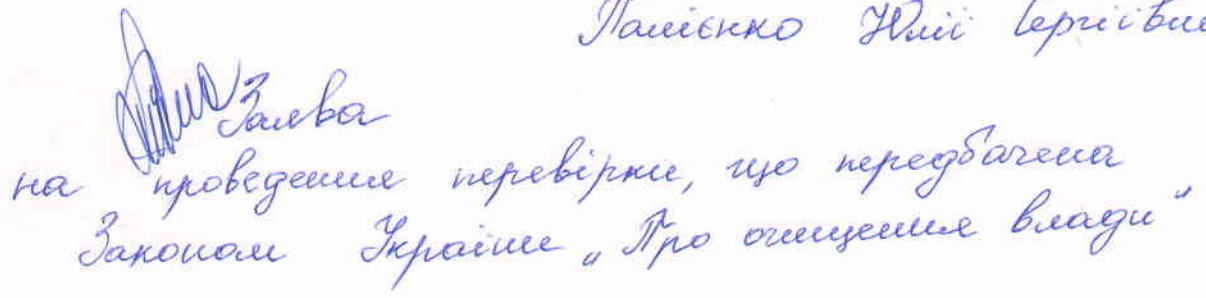 Палієнко Юлії Сергіївни
Заява
на проведення перевірки, що передбачена
Законом України „Про очищення влади"